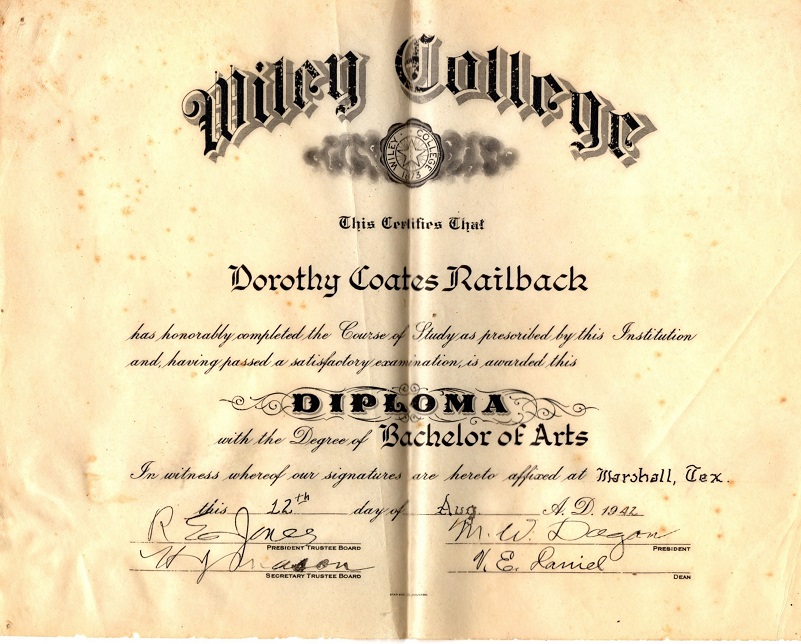 Wiley College
WILEY COLLEGE
1873
This Certifies That
Dorothy Coates Railback
has honorably completed the Course of Study as prescribed by this Institution
and, having passed a satisfactory examination, is awarded this
DIPLOMA
with the Degree of Bachelor of Arts
In witness whereof our signatures are hereto affixed at Marshall, Tex.
this 12th day of Aug. A. D. 1942
R E Jones
PRESIDENT TRUSTEE BOARD
M. W. Dogan
PRESIDENT
SECRETARY TRUSTEE BOARD
V. E. Daniel
DEAN